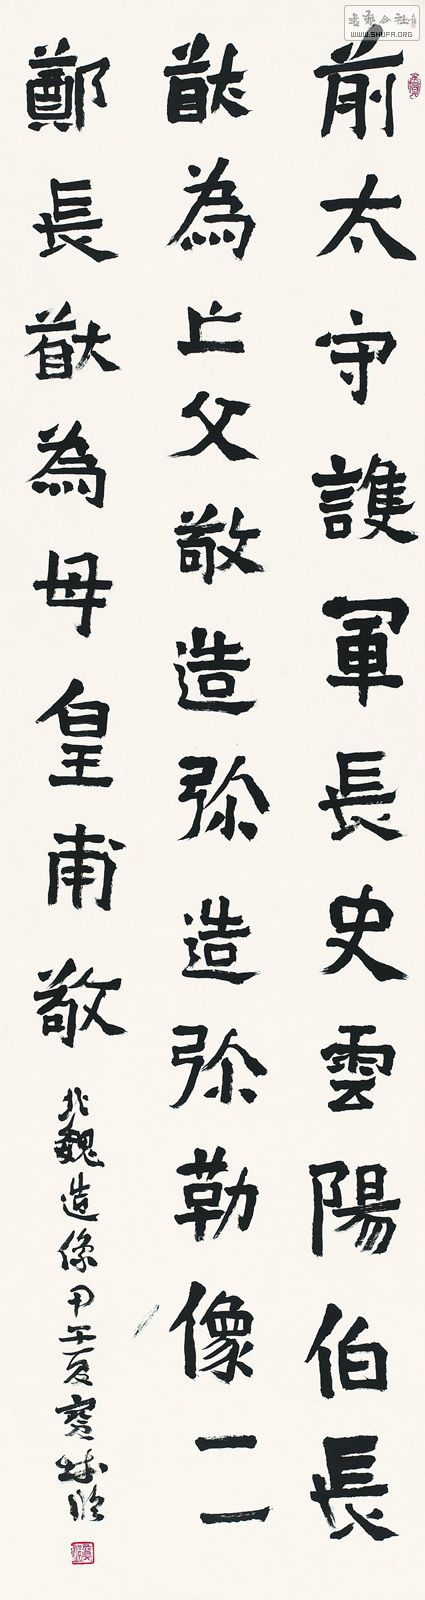 前太守護軍長史雲陽伯長
猷為亡父敬造弥造弥勒像二
鄭長猷為母皇甫敬
北魏造像甲午夏寶林臨
書藝公社
WWW.SHUFA.ORG